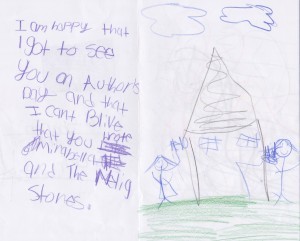 I am happy that
I got to see
you on Author's
Day and that
I cant Blive
that you wrote
mirabella
and The
Stories.